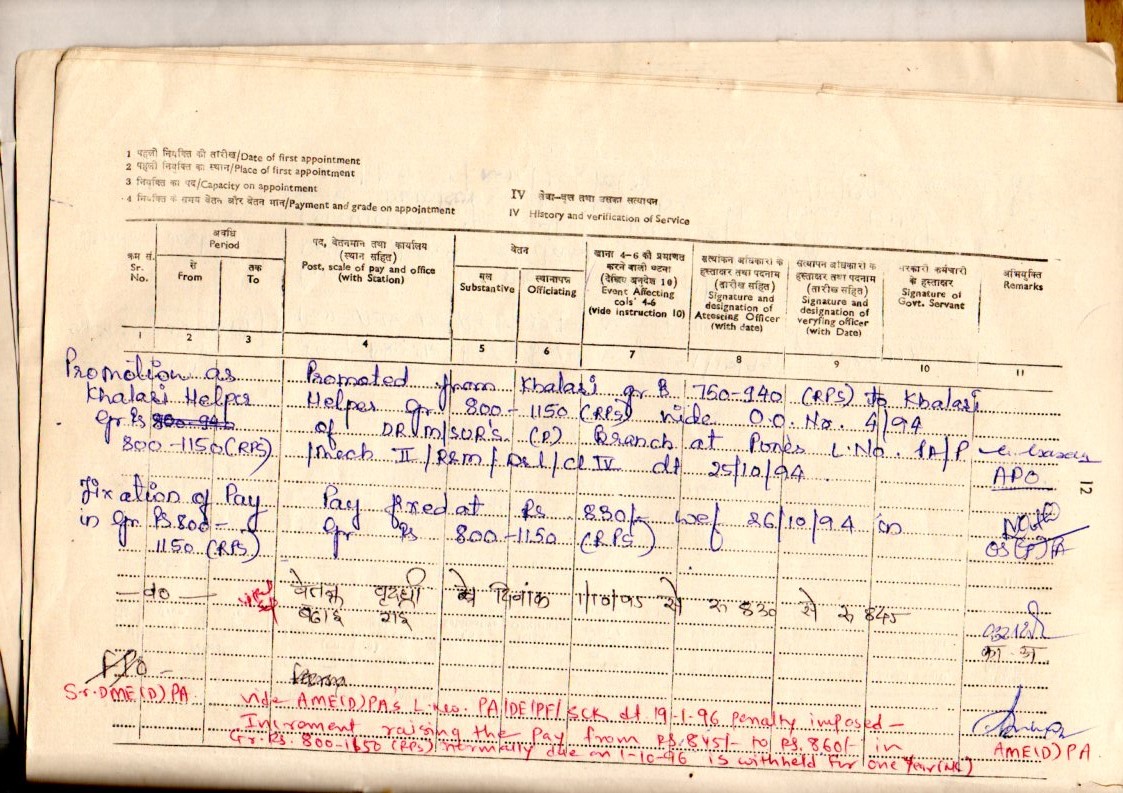 1 पहली नियुक्ति की तारीख/Date of first appointment
2 पहली नियुक्ति का स्थान/Place of first appointment
3 नियुक्ति का पद/Capacity on appointment
4 नियुक्ति के समय वेतन और वेतन मान/Payment and grade on appointment
IV सेवा-वृत्त तथा उसका सत्यापन
IV History and verification of Service
क्रम सं. Sr. No.
अवधि Period
से From
तक To
पद, वेतनमान तथा कार्यालय (स्थान सहित) Post, scale of pay and office (with Station)
वेतन
मूल Substantive
स्थानापन्न Officiating
खाना 4-6 को प्रमाणित करने वाली घटना (देखिए अनुदेश 10) Event Affecting cols' 4-6 (vide instruction 10)
सत्यांकन अधिकारी के हस्ताक्षर तथा पदनाम (तारीख सहित) Signature and designation of Attesting Officer (with date)
सत्यापन अधिकारी के हस्ताक्षर तथा पदनाम (तारीख सहित) Signature and designation of veryfing officer (with Date)
सरकारी कर्मचारी के हस्ताक्षर Signature of Govt. Servant
अभियुक्ति Remarks
1 2 3 4 5 6 7 8 9 10 11
Promotion as Promoted from Khalasi gr ₨ 750-940 (RPS) to Khalasi
Khalasi Helper Helper gr 800-1150 (RPS) vide O.O. No. 4/94
gr ₨ 800-940 of DRM/SUR's (P) Branch at Pones L.No. PA/P
800-1150 (RPS) /Mech II/RSM/DSL/Cl IV dt 25/10/94
APO
12
Fixation of Pay Pay fixed at Rs 830/- wef 26/10/94 in
in gr ₨ 800- gr Rs 800-1150 (RPS)
1150 (RPS)
OS(P)PA
-do- वेतन वृद्धी दिनांक 1/10/95 से रु 830 से रु 845
बढाई गई
का अ
Sr. DME(D)PA
vide AME(D)PA's L.No. PA/DE/PF/SCK dt 19-1-96 Penalty imposed-
Increment raising the Pay from Rs. 845/- to Rs. 860/- in
Gr. Rs. 800-1150 (RPS) normally due on 1-10-96 is withheld for one Year (NC)
AME(D)PA